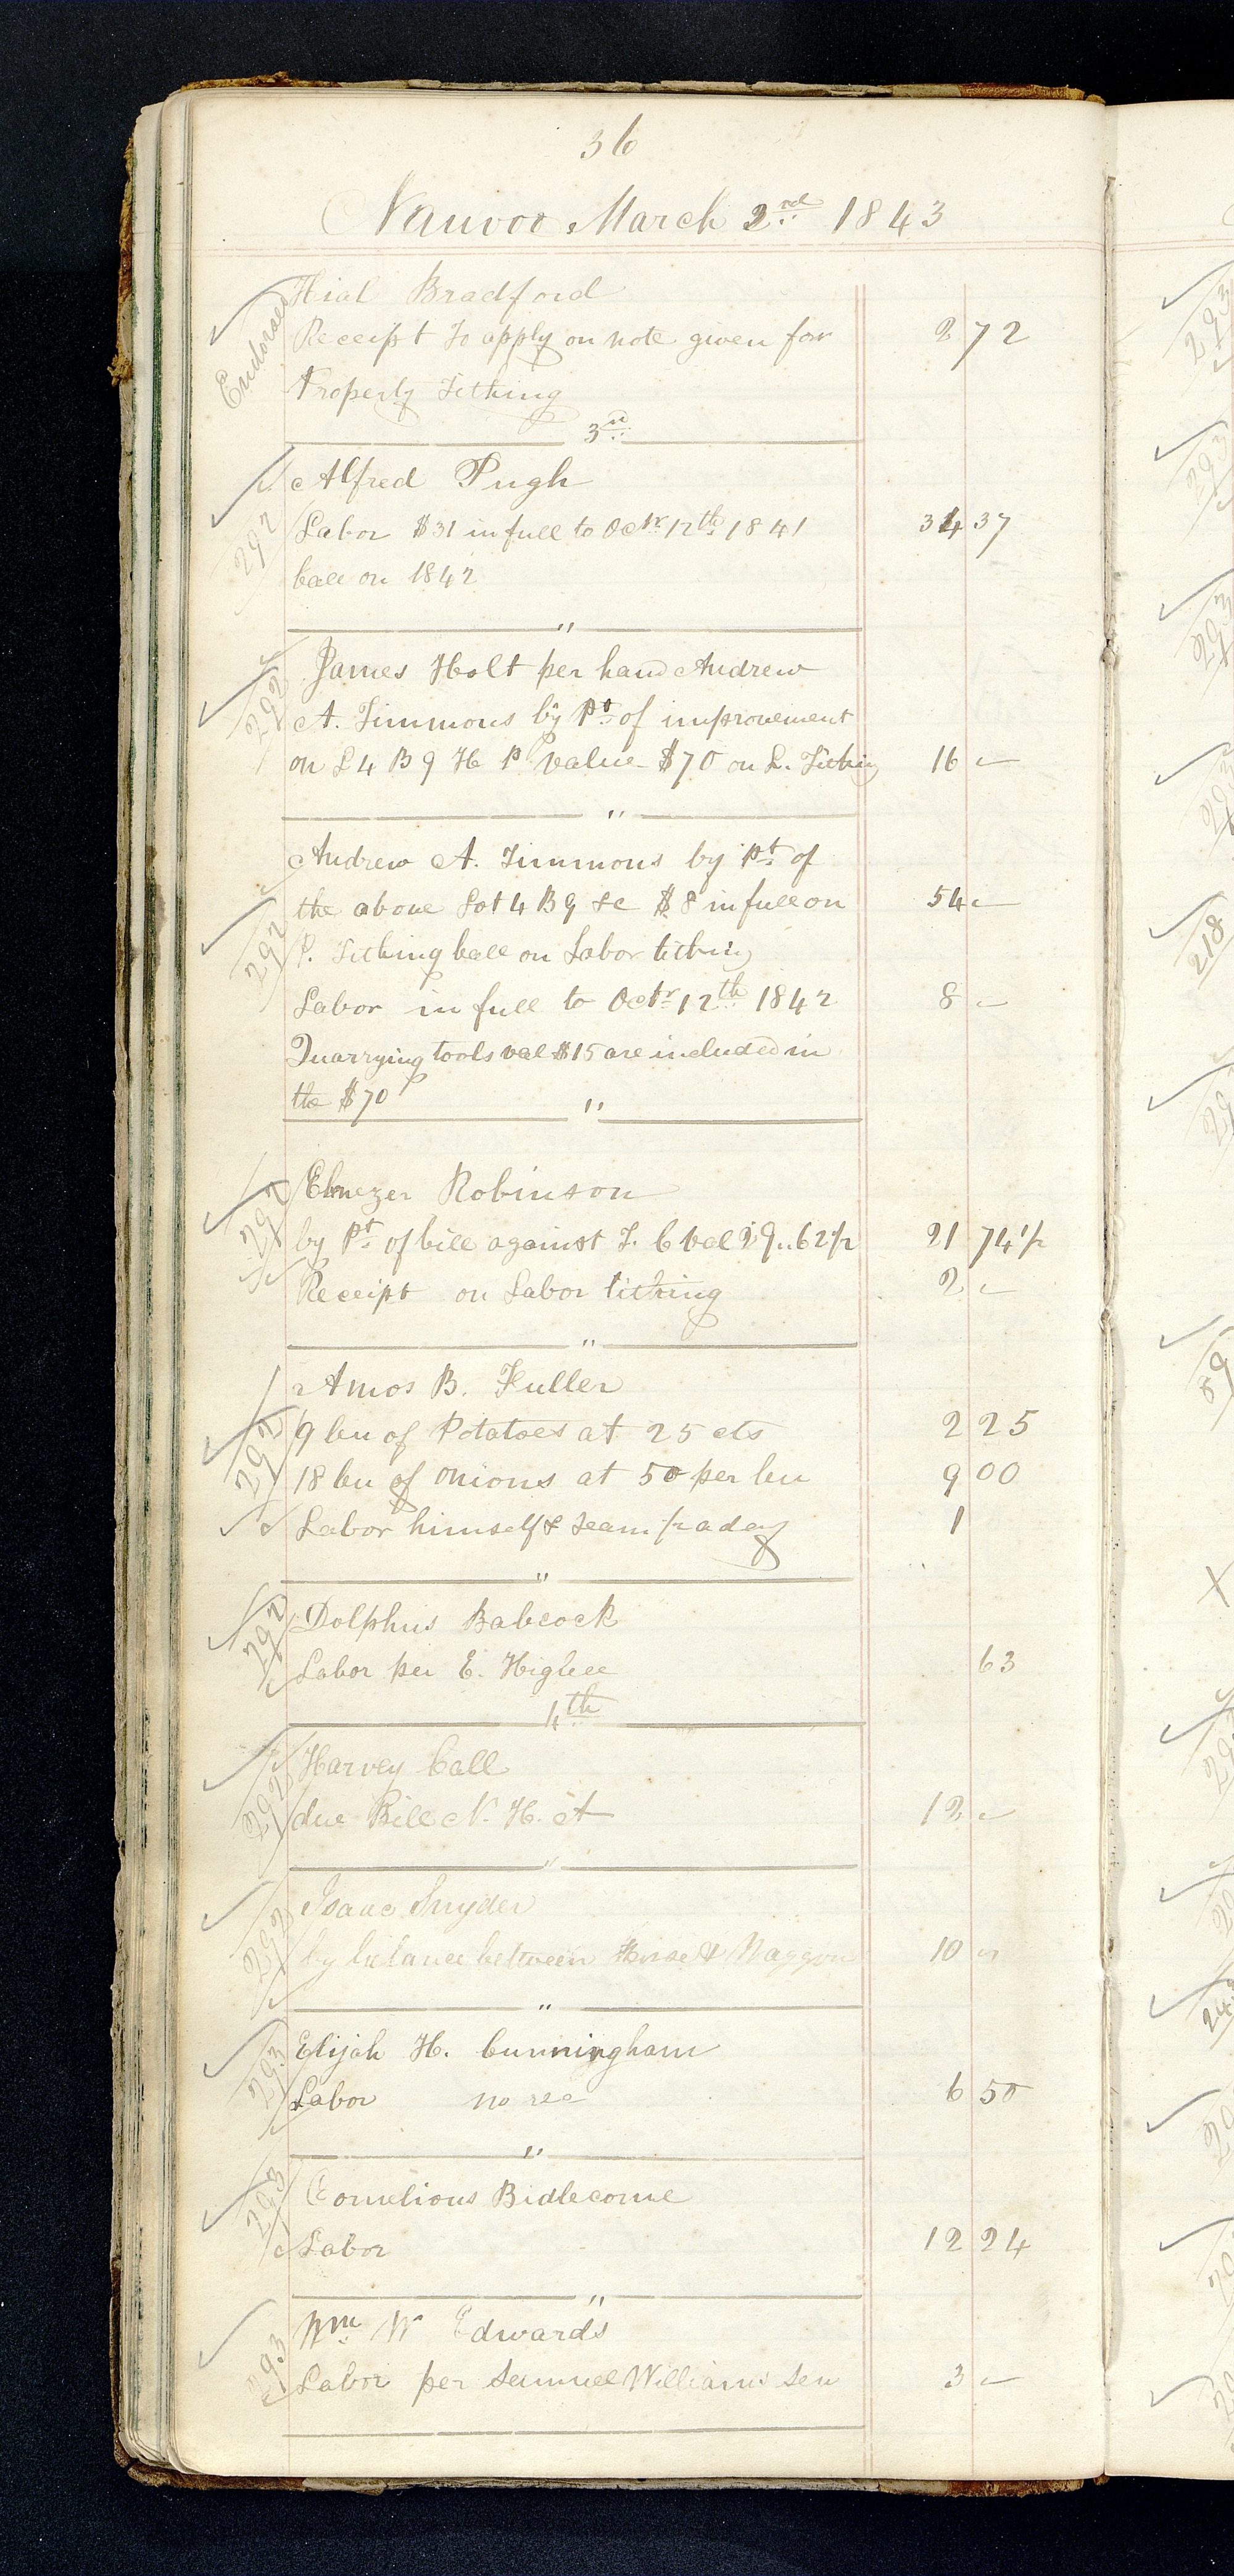 36
Nauvoo March 2nd 1843
Endorsed
Hial Bradford
Receipt to apply on note given for 2 72
Property Tithing
3rd
292
Alfred Pugh
Labor $31 in full to Octr 12th 1841 34 37
ball on 1842
"
292
James Holt per hand Andrew
A. Timmons by Pt of improvement
on L 4 B 9 H P value $70 on L. Tithing 16 –
"
292
Andrew A. Timmons by Pt of
the above Lot 4 B 9 &c $8 in full on 54 –
P. Tithing ball on Labor tithing
Labor in full to Octr 12th 1842 8 –
Quarrying tools val $15 are included in
the $70
"
292
Ebnezer Robinson
by Pt of bill against T. C val 29..62 1/2 21 74 1/2
Receipt on Labor tithing 2 –
"
292
Amos B. Fuller
9 bu of Potatoes at 25 cts 2 25
18 bu of onions at 50 per bu 9 00
Labor himself & team 1/2 a day 1
"
292
Dolphus Babcock
Labor per E. Higbee 63
4th
292
Harvey Call
due Bill N. H. A 12 –
"
292
Isaac Snyder
by balance between Horse & Waggon 10 "
"
293
Elijah H. Cunningham
Labor no rec 6 50
"
293
Cornelious Bidlecome
Labor 12 24
"
293
Wm W Edwards
Labor per Samuel Williams Sen 3 –
293
293
293
218
59